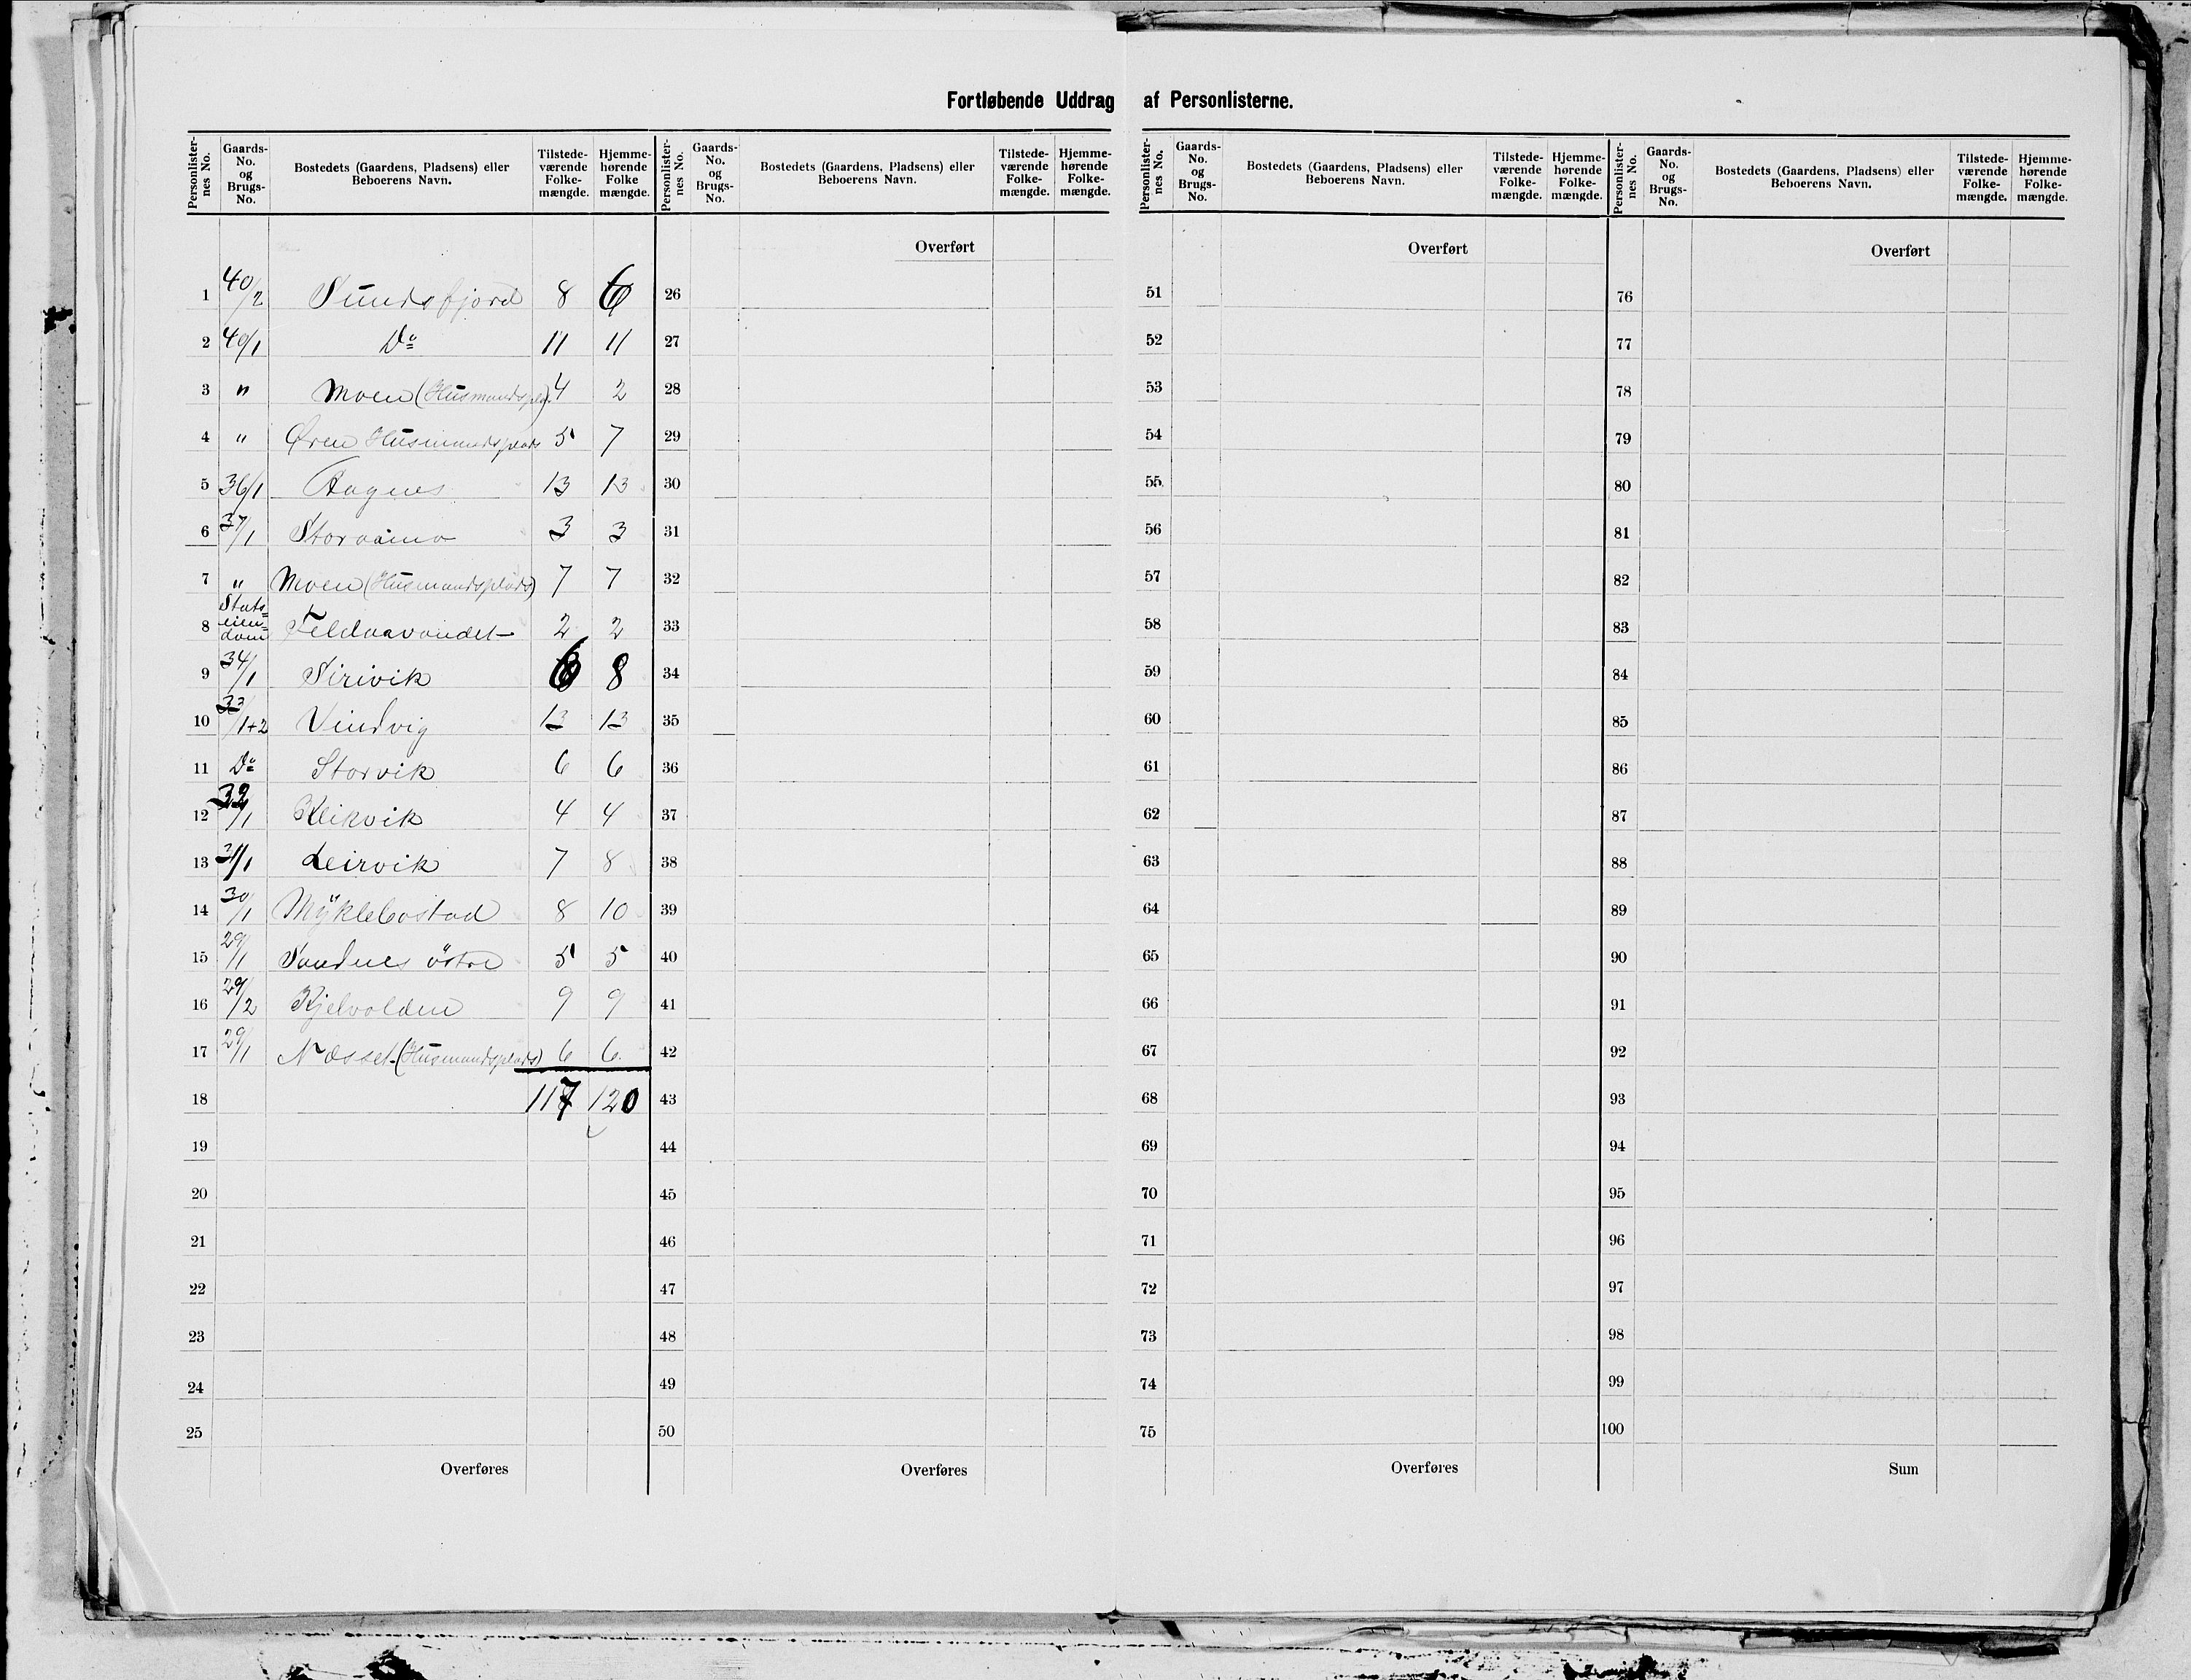 Fortløbende Uddrag af Personlisterne.
Personlister-nes No. | Gaards-No. og Brugs-No. | Bostedets (Gaardens, Pladsens) eller Beboerens Navn. | Tilstede-værende Folke-mængde. | Hjemme-hørende Folke mængde.
1 40/2 Sundsfjord 8 6
2 40/1 Do 11 11
3 " Moen (Husmandspl.) 4 2
4 " Øren Husmandsplads 5 7
5 36/1 Aagnes 13 13
6 37/1 Storaamo 3 3
7 " Moen (Husmandsplads) 7 7
8 Stats=eien=dom Feldvavandet 2 2
9 34/1 Sirivik 6 8
10 33/1+2 Vindvig 13 13
11 Do Storvik 6 6
12 32/1 Kleikvik 4 4
13 31/1 Leirvik 7 8
14 30/1 Myklebostad 8 10
15 29/1 Sandnes östre 5 5
16 29/2 Kjelvolden 9 9
17 29/1 Næsset (Husmandsplads) 6 6
18 117 120
19
20
21
22
23
24
25
Overføres
Personlister-nes No. | Gaards-No. og Brugs-No. | Bostedets (Gaardens, Pladsens) eller Beboerens Navn. | Tilstede-værende Folke-mængde. | Hjemme-hørende Folke-mængde.
Overført
26
27
28
29
30
31
32
33
34
35
36
37
38
39
40
41
42
43
44
45
46
47
48
49
50
Overføres
Personlister-nes No. | Gaards-No. og Brugs-No. | Bostedets (Gaardens, Pladsens) eller Beboerens Navn. | Tilstede-værende Folke-mængde. | Hjemme-hørende Folke-mængde.
Overført
51
52
53
54
55
56
57
58
59
60
61
62
63
64
65
66
67
68
69
70
71
72
73
74
75
Overføres
Personlister-nes No. | Gaards-No. og Brugs-No. | Bostedets (Gaardens, Pladsens) eller Beboerens Navn. | Tilstede-værende Folke-mængde. | Hjemme-hørende Folke-mængde.
Overført
76
77
78
79
80
81
82
83
84
85
86
87
88
89
90
91
92
93
94
95
96
97
98
99
100
Sum